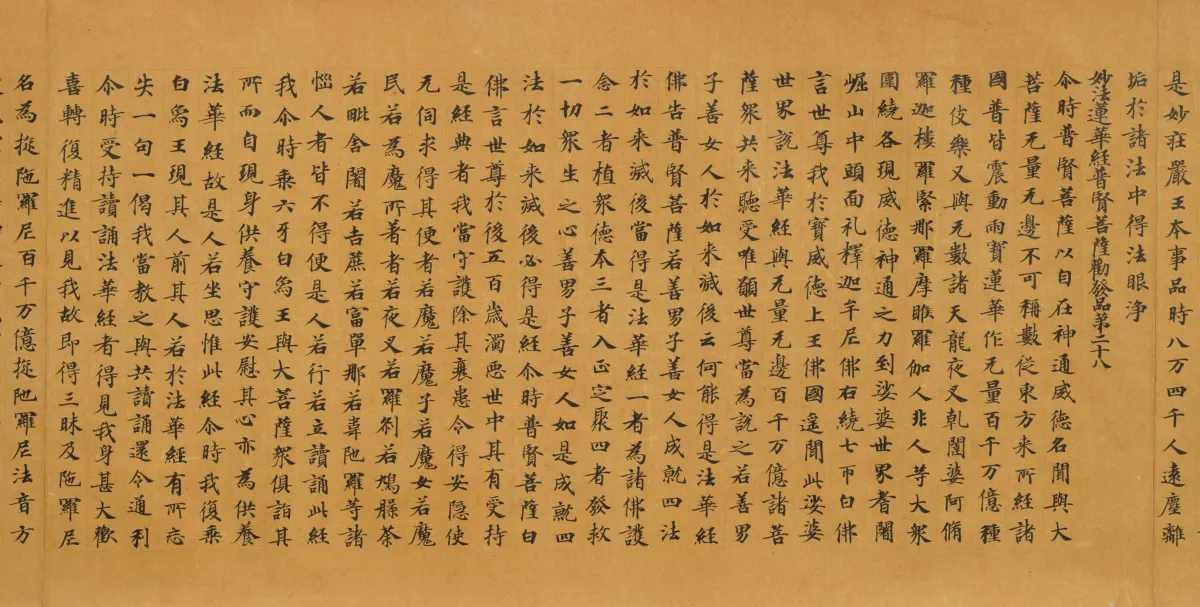 是妙莊嚴王本事品時八万四千人遠塵離
垢於諸法中得法眼淨
妙法蓮華経普賢菩薩勸發品第二十八
尒時普賢菩薩以自在神通威德名聞與大
菩薩无量无邊不可稱數從東方来所經諸
國普皆震動雨寶蓮華作无量百千万億種
種伎樂又與无數諸天龍夜叉乹闥婆阿脩
羅迦樓羅緊那羅摩睺羅伽人非人等大衆
圍繞各現威德神通之力到娑婆世界耆闍
崛山中頭面礼釋迦牟尼佛右繞七帀白佛
言世尊我於寶威德上王佛國遥聞此娑婆
世界說法華經與无量无邊百千万億諸菩
薩衆共来聽受唯願世尊當為說之若善男
子善女人於如来滅後云何能得是法華經
佛告普賢菩薩若善男子善女人成就四法
於如来滅後當得是法華經一者為諸佛護
念二者植衆德本三者入正定聚四者發救
一切衆生之心善男子善女人如是成就四
法於如来滅後必得是經尒時普賢菩薩白
佛言世尊於後五百歲濁惡世中其有受持
是經典者我當守護除其衰患令得安隱使
无伺求得其便者若魔若魔子若魔女若魔
民若為魔所著者若夜叉若羅刹若鳩槃荼
若毗舍闍若吉蔗若富單那若韋陁羅等諸
惱人者皆不得便是人若行若立讀誦此經
我尒時乘六牙白烏王與大菩薩衆俱詣其
所而自現身供養守護安慰其心亦為供養
法華經故是人若坐思惟此經尒時我復乘
白烏王現其人前其人若於法華經有所忘
失一句一偈我當教之與共讀誦還令通利
尒時受持讀誦法華經者得見我身甚大歡
喜轉復精進以見我故即得三昧及陁羅尼
名為旋陁羅尼百千万億旋陁羅尼法音方